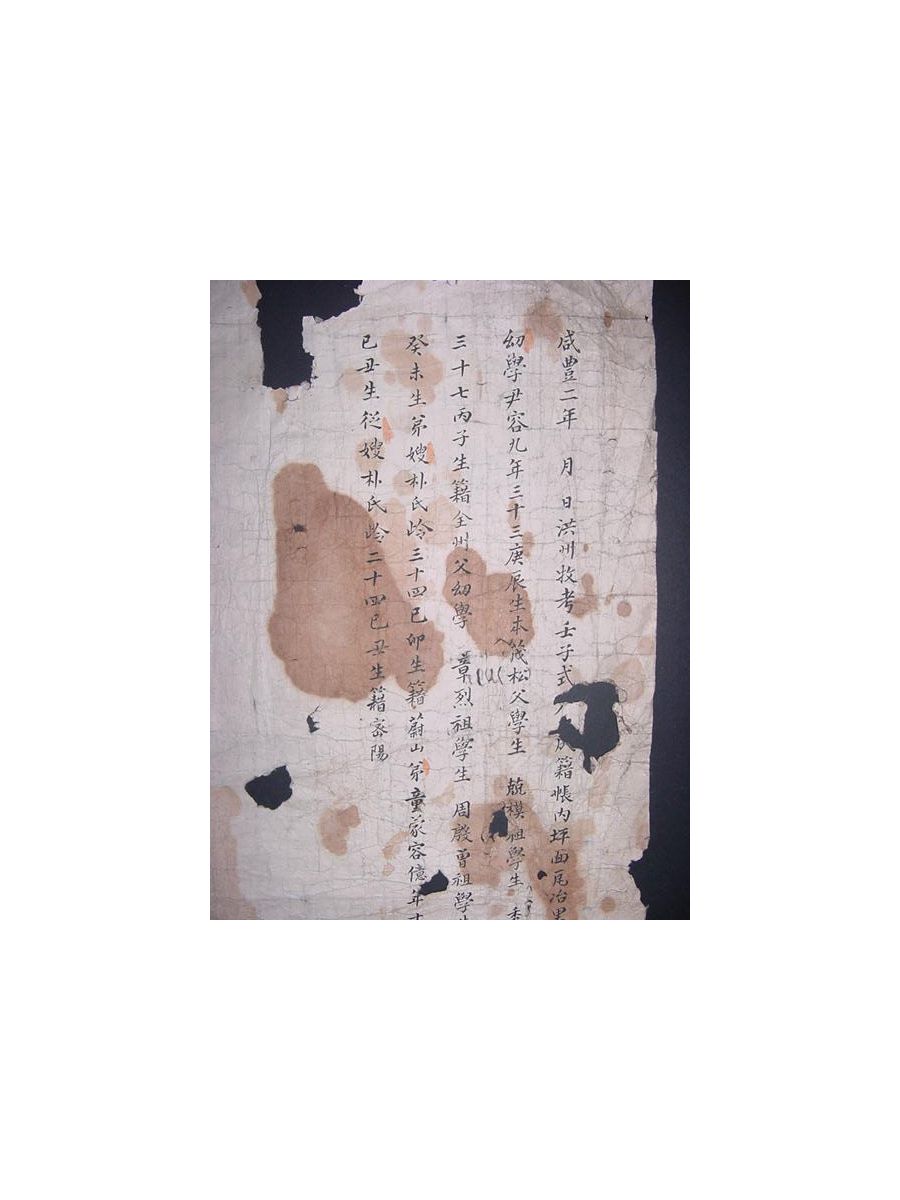 咸豊二年 月 日洪州牧考壬子式 籍帳內坪面尾冶里
幼學尹容九年三十三庚辰生本 松父學生 模祖學生
三十七丙子生籍全州父幼學 章烈祖學生 周殷曾祖學生
癸未生弟嫂朴氏岭三十四己卯生籍蔚山弟童蒙容億年十
己丑生従嫂朴氏岭二十四己丑生籍密陽